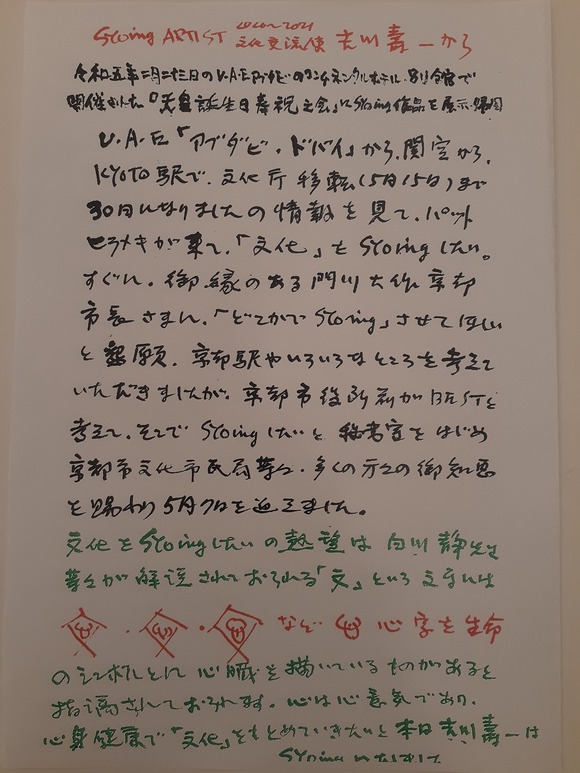 SYOing ARTIST 2021 文化交流使 吉川壽一から
令和五年二月二十三日のU.A.Eアブダビのコンチネンタルホテル別館で
開催された「天皇誕生日寿祝之会」にSYOing作品を展示・帰国
U.A.E「アブダビ・ドバイ」から、関空から、
KYOTO駅で、文化庁移転(5月15日)まで
30日になりましたの情報を見て、パット
ヒラメキが来て、「文化」をSYOingしたい。
すぐに、御縁のある門川大作京都
市長さまに、「どこかでSYOing」させてほしい
と懇願、京都駅やいろいろなところを考えて
いただきましたが、京都市役所前がBESTと
考えて、そこでSYOingしたいと秘書室をはじめ
京都市文化市民局等々、多くの方々の御知恵
を賜わり5月7日を迎えました。
文化をSYOingしたいの熱望は白川静先生
等々が解説されておられる「文」という文字には
など 心字を生命
のシンボルとして心臓を描いているものがあると
指摘されております。心は心意気であり、
心身健康で「文化」をもとめていきたいと本日吉川壽一は
SYOingいたします。